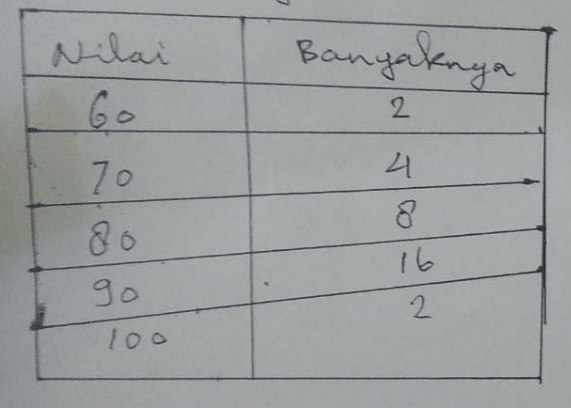 Nilai Banyaknya
60 2
70 4
80 8
90 16
100 2